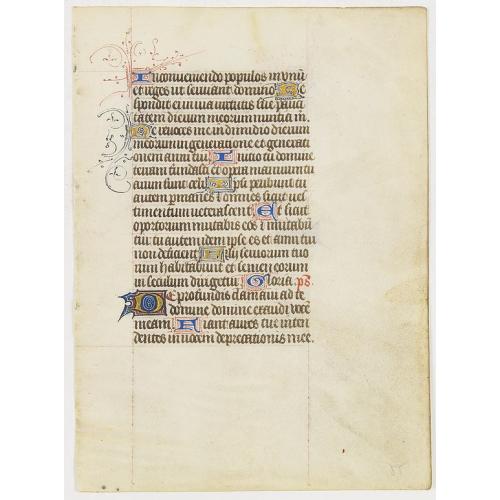 In conveniendo populos in unū
et reges ut serviant domino Re
spondit ei in via virtutis sue pauci
tatem dierum meorum nuntia m
Ne revoces me in dimidio dierum
meorum in generatione et generati
onem anni tui Initio tu domine
terram fundasti et opera manuum tu
arum sunt celi Ipsi peribunt tu
autem permanes et omnes sicut ves
timentum veterascent Et sicut
opertorium mutabis eos et mutabū
tur tu autem idem ipse es et anni tui
non deficient Filii servorum tuo
rum habitabunt et semen eorum
in seculum dirigetur Gloria ps.
De profundis clamavi ad te
domine domine exaudi vocē
meam. Fiant aures tue inten
dentes in vocem deprecationis mee.